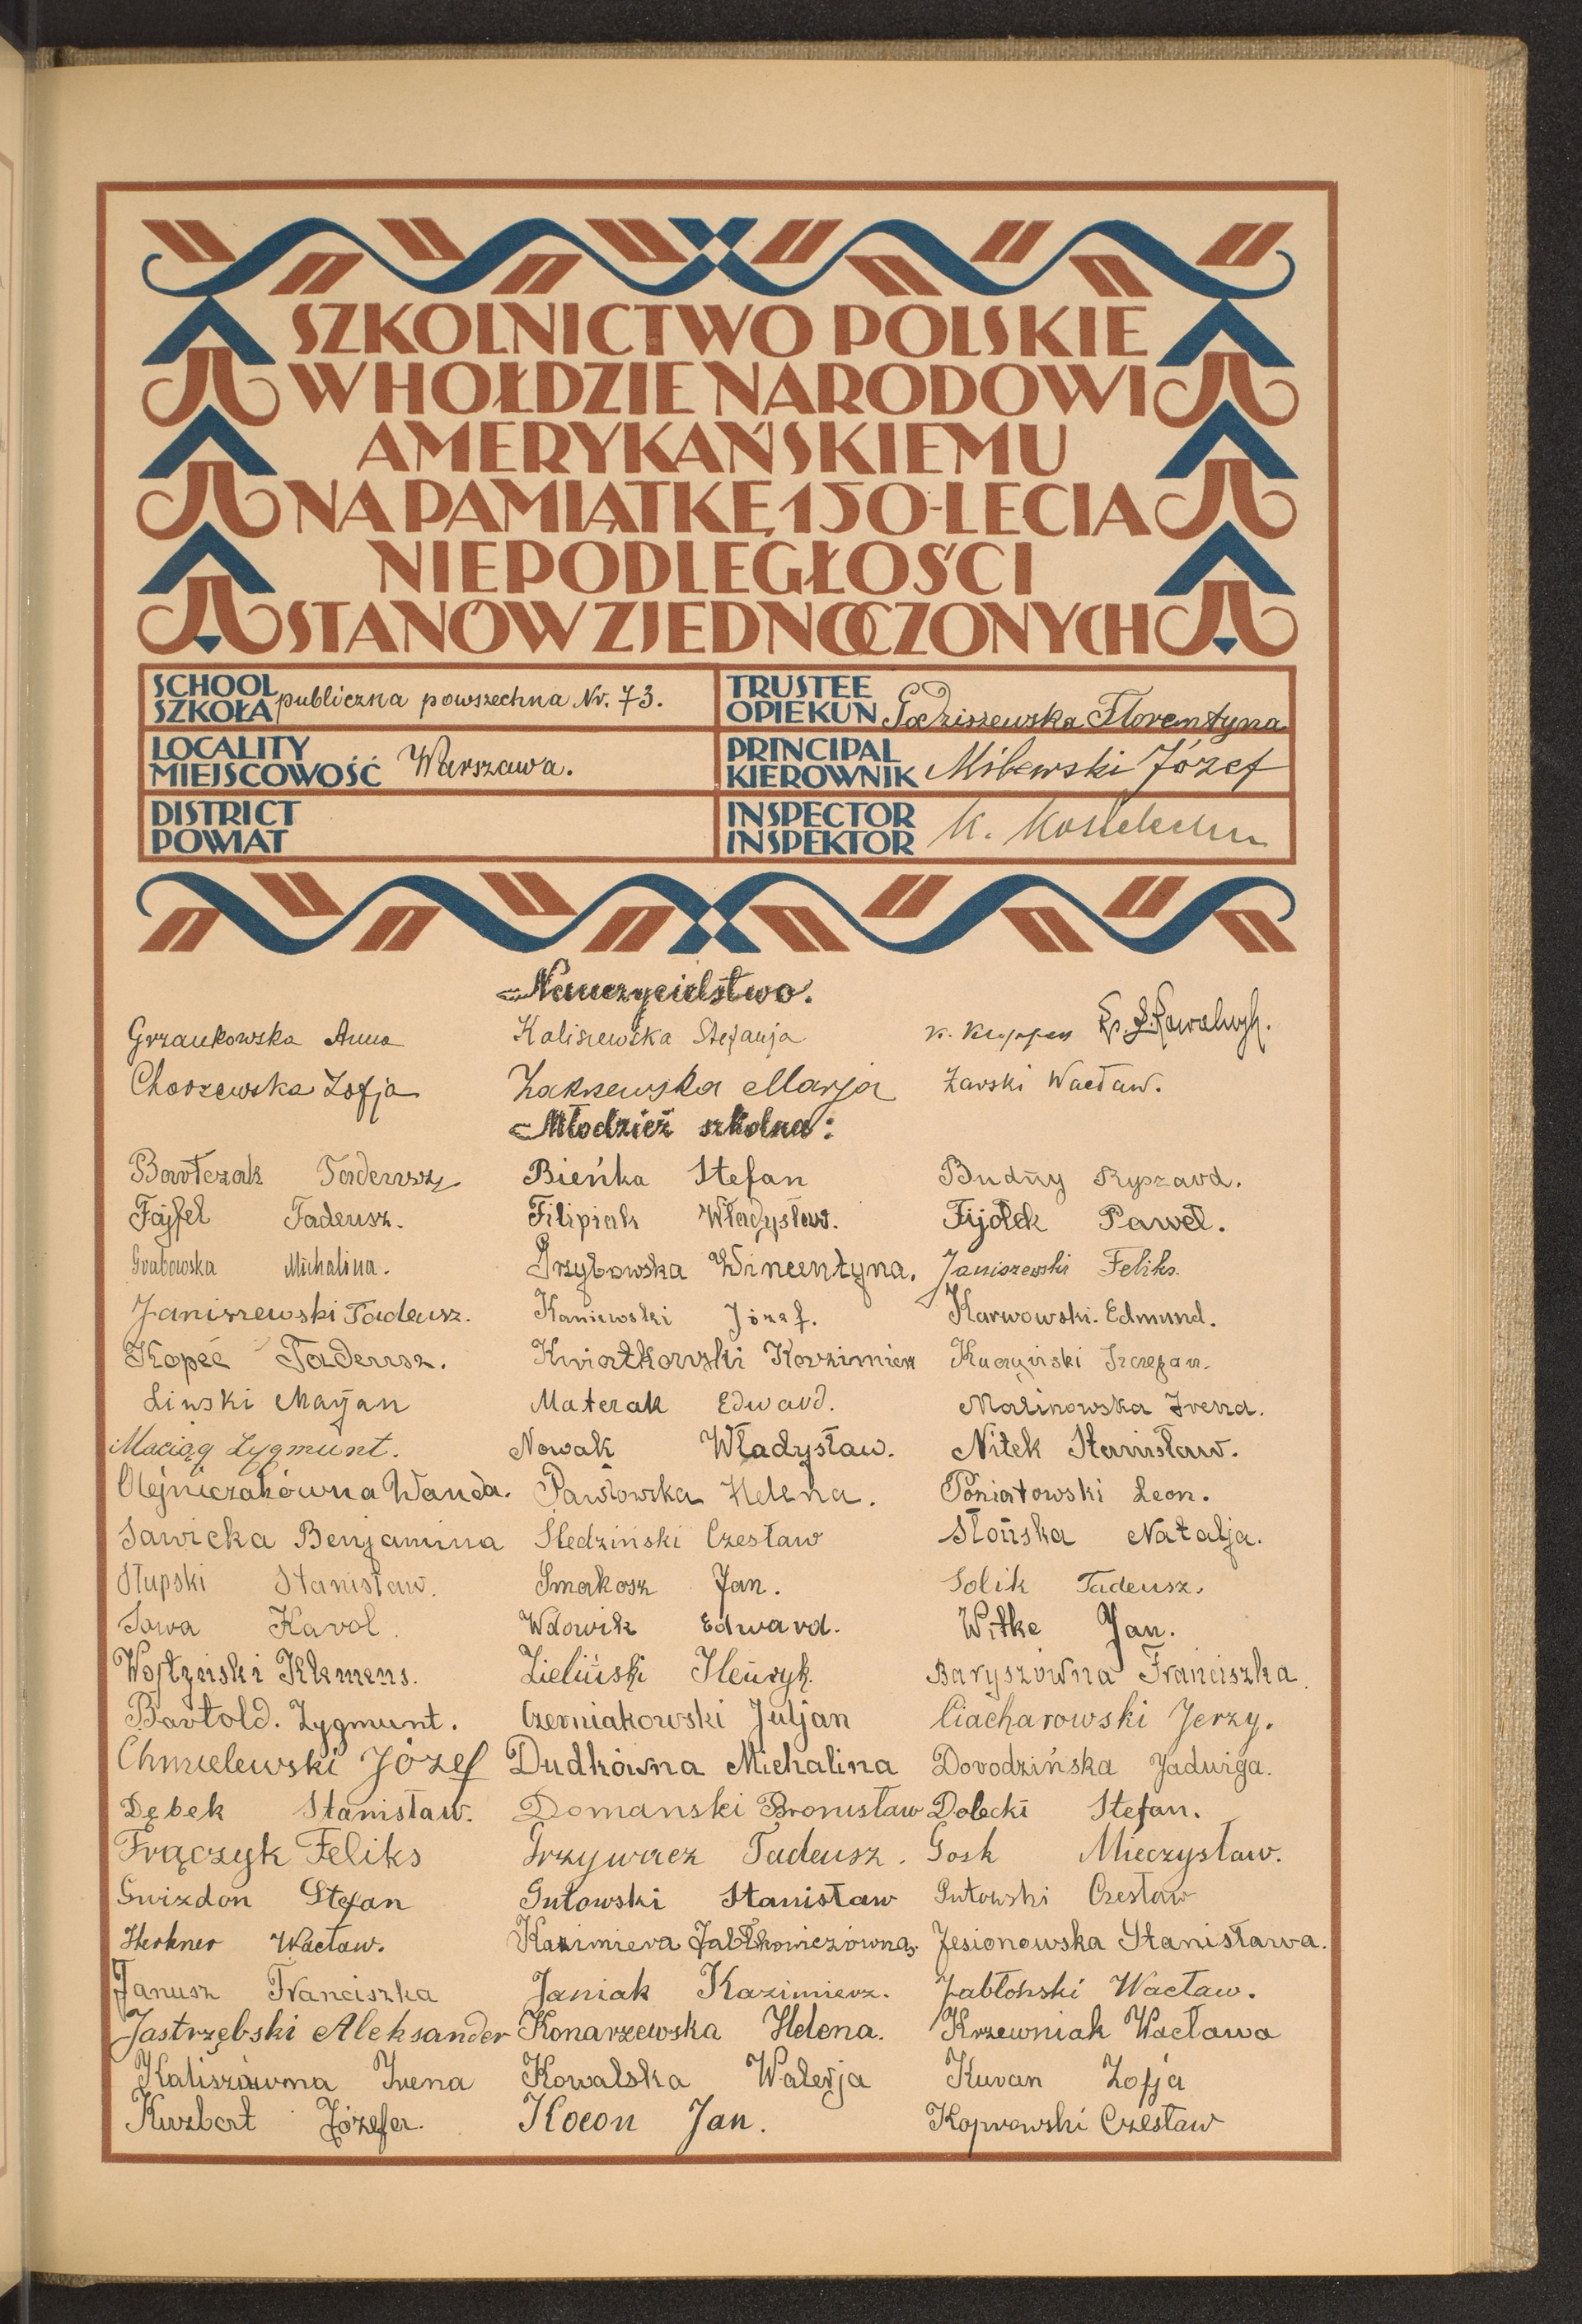 SZKOLNICTWO POLSKIE
W HOŁDZIE NARODOWI
AMERYKAŃSKIEMU
NA PAMIĄTKĘ 150-LECIA
NIEPODLEGŁOŚCI
STANÓW ZJEDNOCZONYCH
SCHOOL SZKOŁA publiczna powszechna Nr. 73.
TRUSTEE OPIEKUN Godziszewska Florentyna
LOCALITY MIEJSCOWOŚĆ Warszawa.
PRINCIPAL KIEROWNIK Milewski Józef
DISTRICT POWIAT
INSPECTOR INSPEKTOR K.
Nauczycielstwo.
Grzankowska Anna Kaliszewska Stefanja K.
Choszewska Zofja Zakrzewska Marja Żarski Wacław.
Młodzież szkolna:
Bartczak Tadeusz Bieńka Stefan Budny Ryszard.
Fajfel Tadeusz. Filipiak Władysław. Fijołek Paweł.
Grabowska Michalina. Grzybowska Wincentyna. Janiszewski Feliks.
Janiszewski Tadeusz. Kaniewski Józef. Karwowski. Edmund.
Kopeć Tadeusz. Kwiatkowski Kazimierz Kuczyński Szczepan.
Linski Maryan Materak Edward. Malinowska Irena.
Maciąg Zygmunt. Nowak Władysław. Nitek Stanisław.
Olejniczakówna Wanda. Pawłowska Helena. Poniatowski Leon.
Sawicka Benjamina Śledziński Czesław Słońska Natalja.
Słupski Stanisław. Smakosz Jan. Solik Tadeusz.
Sowa Karol. Wdowik Edward. Witke Jan.
Wojtyński Klemens. Zieliński Henryk. Baryszówna Franciszka.
Bartold. Zygmunt. Czerniakowski Juljan Ciacharowski Jerzy.
Chmielewski Józef Dudkówna Michalina Dorodzińska Jadwiga.
Dębek Stanisław. Domanski Bronisław Dolecki Stefan.
Frączyk Feliks Grzywacz Tadeusz. Gosk Mieczysław.
Gwizdon Stefan Gutowski Stanisław Gutowski Czesław
Herkner Wacław. Kazimiera Jabłkowiczówna. Jesionowska Stanisława.
Janusz Franciszka Janiak Kazimierz. Jabłoński Wacław.
Jastrzębski Aleksander Konarzewska Helena. Krzewniak Wacława
Kaliszówna Irena Kowalska Walerja Kuran Zofja
Kurzbart Józefa. Kocon Jan. Koprowski Czesław